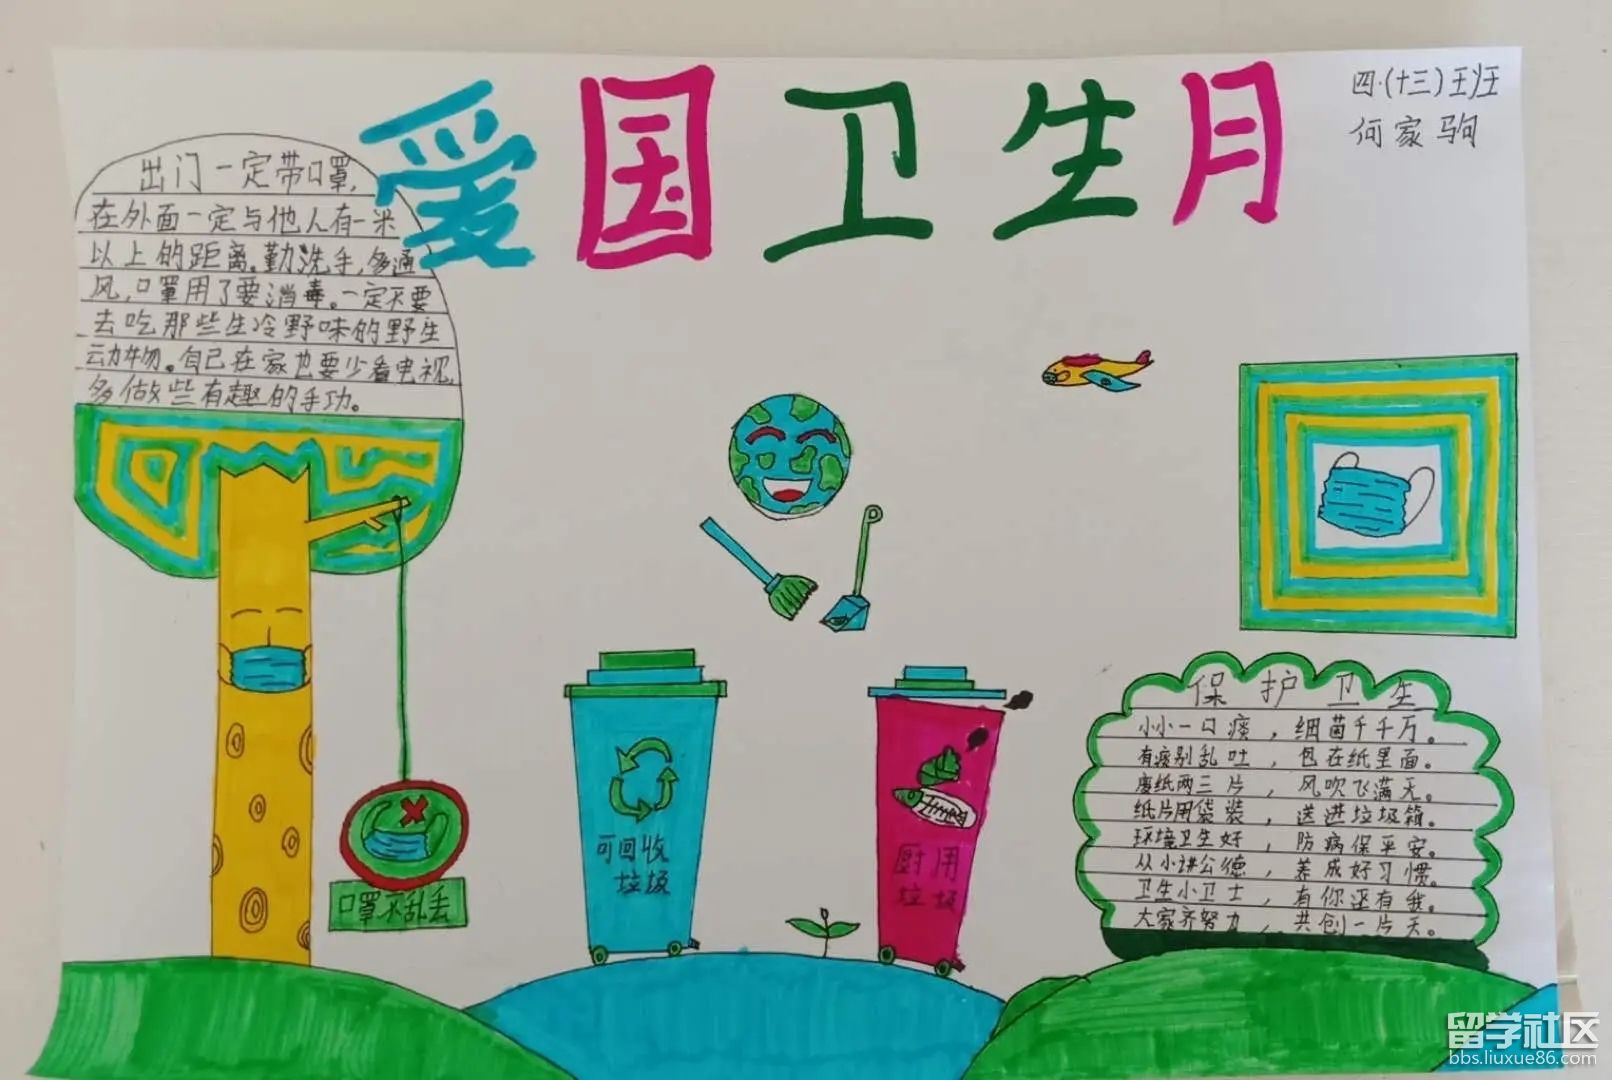 爱国卫生月
四.(十三)班
何家驹
出门一定带口罩,
在外面一定与他人有一米
以上的距离。勤洗手,多通
风,口罩用了要消毒。一定不要
去吃那些生冷野味的野生
动物。自己在家也要少看电视,
多做些有趣的手功。
口罩不乱丢
可回收
垃圾
厨用
垃圾
保护卫生
小小一口痰,细菌千千万。
有痰别乱吐,包在纸里面。
废纸两三片,风吹飞满天。
纸片用袋装,送进垃圾箱。
环境卫生好,防病保平安。
从小讲公德,养成好习惯。
卫生小卫士,有你还有我。
大家齐努力,共创一片天。
留学社区
bbs.liuxue86.com